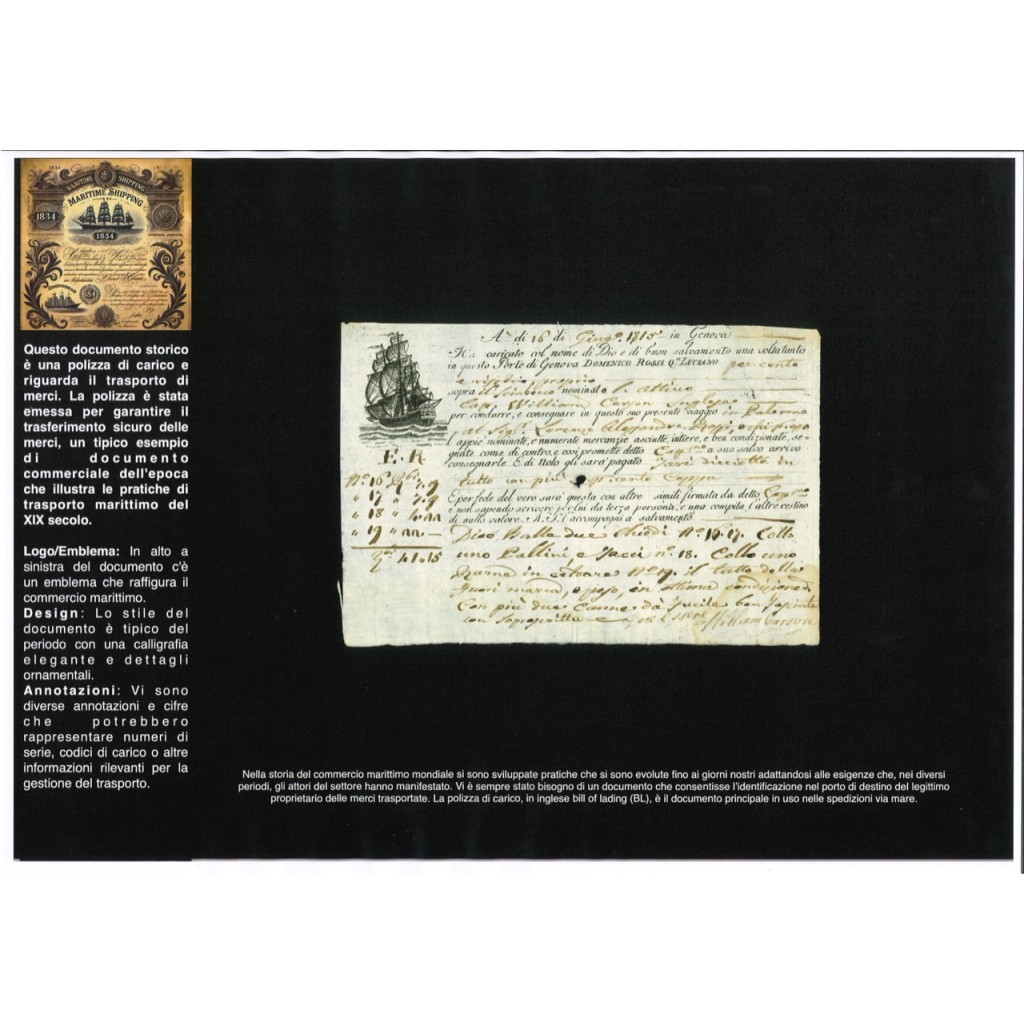 1834
MARITIME SHIPPING
MARITIME SHIPPING
1834
1834
Questo documento storico
è una polizza di carico e
riguarda il trasporto di
merci. La polizza è stata
emessa per garantire il
trasferimento sicuro delle
merci, un tipico esempio
di documento
commerciale dell'epoca
che illustra le pratiche di
trasporto marittimo del
XIX secolo.
Logo/Emblema: In alto a
sinistra del documento c'è
un emblema che raffigura il
commercio marittimo.
Design: Lo stile del
documento è tipico del
periodo con una calligrafia
elegante e dettagli
ornamentali.
Annotazioni: Vi sono
diverse annotazioni e cifre
che potrebbero
rappresentare numeri di
serie, codici di carico o altre
informazioni rilevanti per la
gestione del trasporto.
A di 16 di Giug.º 1815 in Genova
Ha caricato col nome di Dio e di buon salvamento una volta tanto
in questo Porto di Genova DOMENICO ROSSI Q. LUCIANO per conto
e rischio proprio
sopra il nominato l'attivo
Cap. William Carson Inglese
per condurre, e consegnare in questo suo presente viaggio in Palermo
al Sig. Lorenzo
l'appiè nominate, e numerate mercanzie asciutte, intiere, e ben condizionate, se-
gnato come di contro, e così promette detto Cap.no a suo salvo arrivo
consegnarle. E di Nolo gli sarà pagato
tutto con più
E per fede del vero sarà questa con altre simili firmata da detto Cap.no
e non sapendo scrivere per lui da terza persona, e una compita, l'altre restino
di nullo valore. A. S. l'accompagni a salvamento.
F. R.
Nº 16
" 17 " 7.9
" 18 "
" 19 "
41.15
Dico Balle due Nº 16. 17. Collo
uno Pallini e nº 18. Collo uno
Rame in Nº 19. il tutto della
marca, e peso, in ottima condizione
Con più due Canne da
con Soprascritta
William Carson
Nella storia del commercio marittimo mondiale si sono sviluppate pratiche che si sono evolute fino ai giorni nostri adattandosi alle esigenze che, nei diversi
periodi, gli attori del settore hanno manifestato. Vi è sempre stato bisogno di un documento che consentisse l'identificazione nel porto di destino del legittimo
proprietario delle merci trasportate. La polizza di carico, in inglese bill of lading (BL), è il documento principale in uso nelle spedizioni via mare.